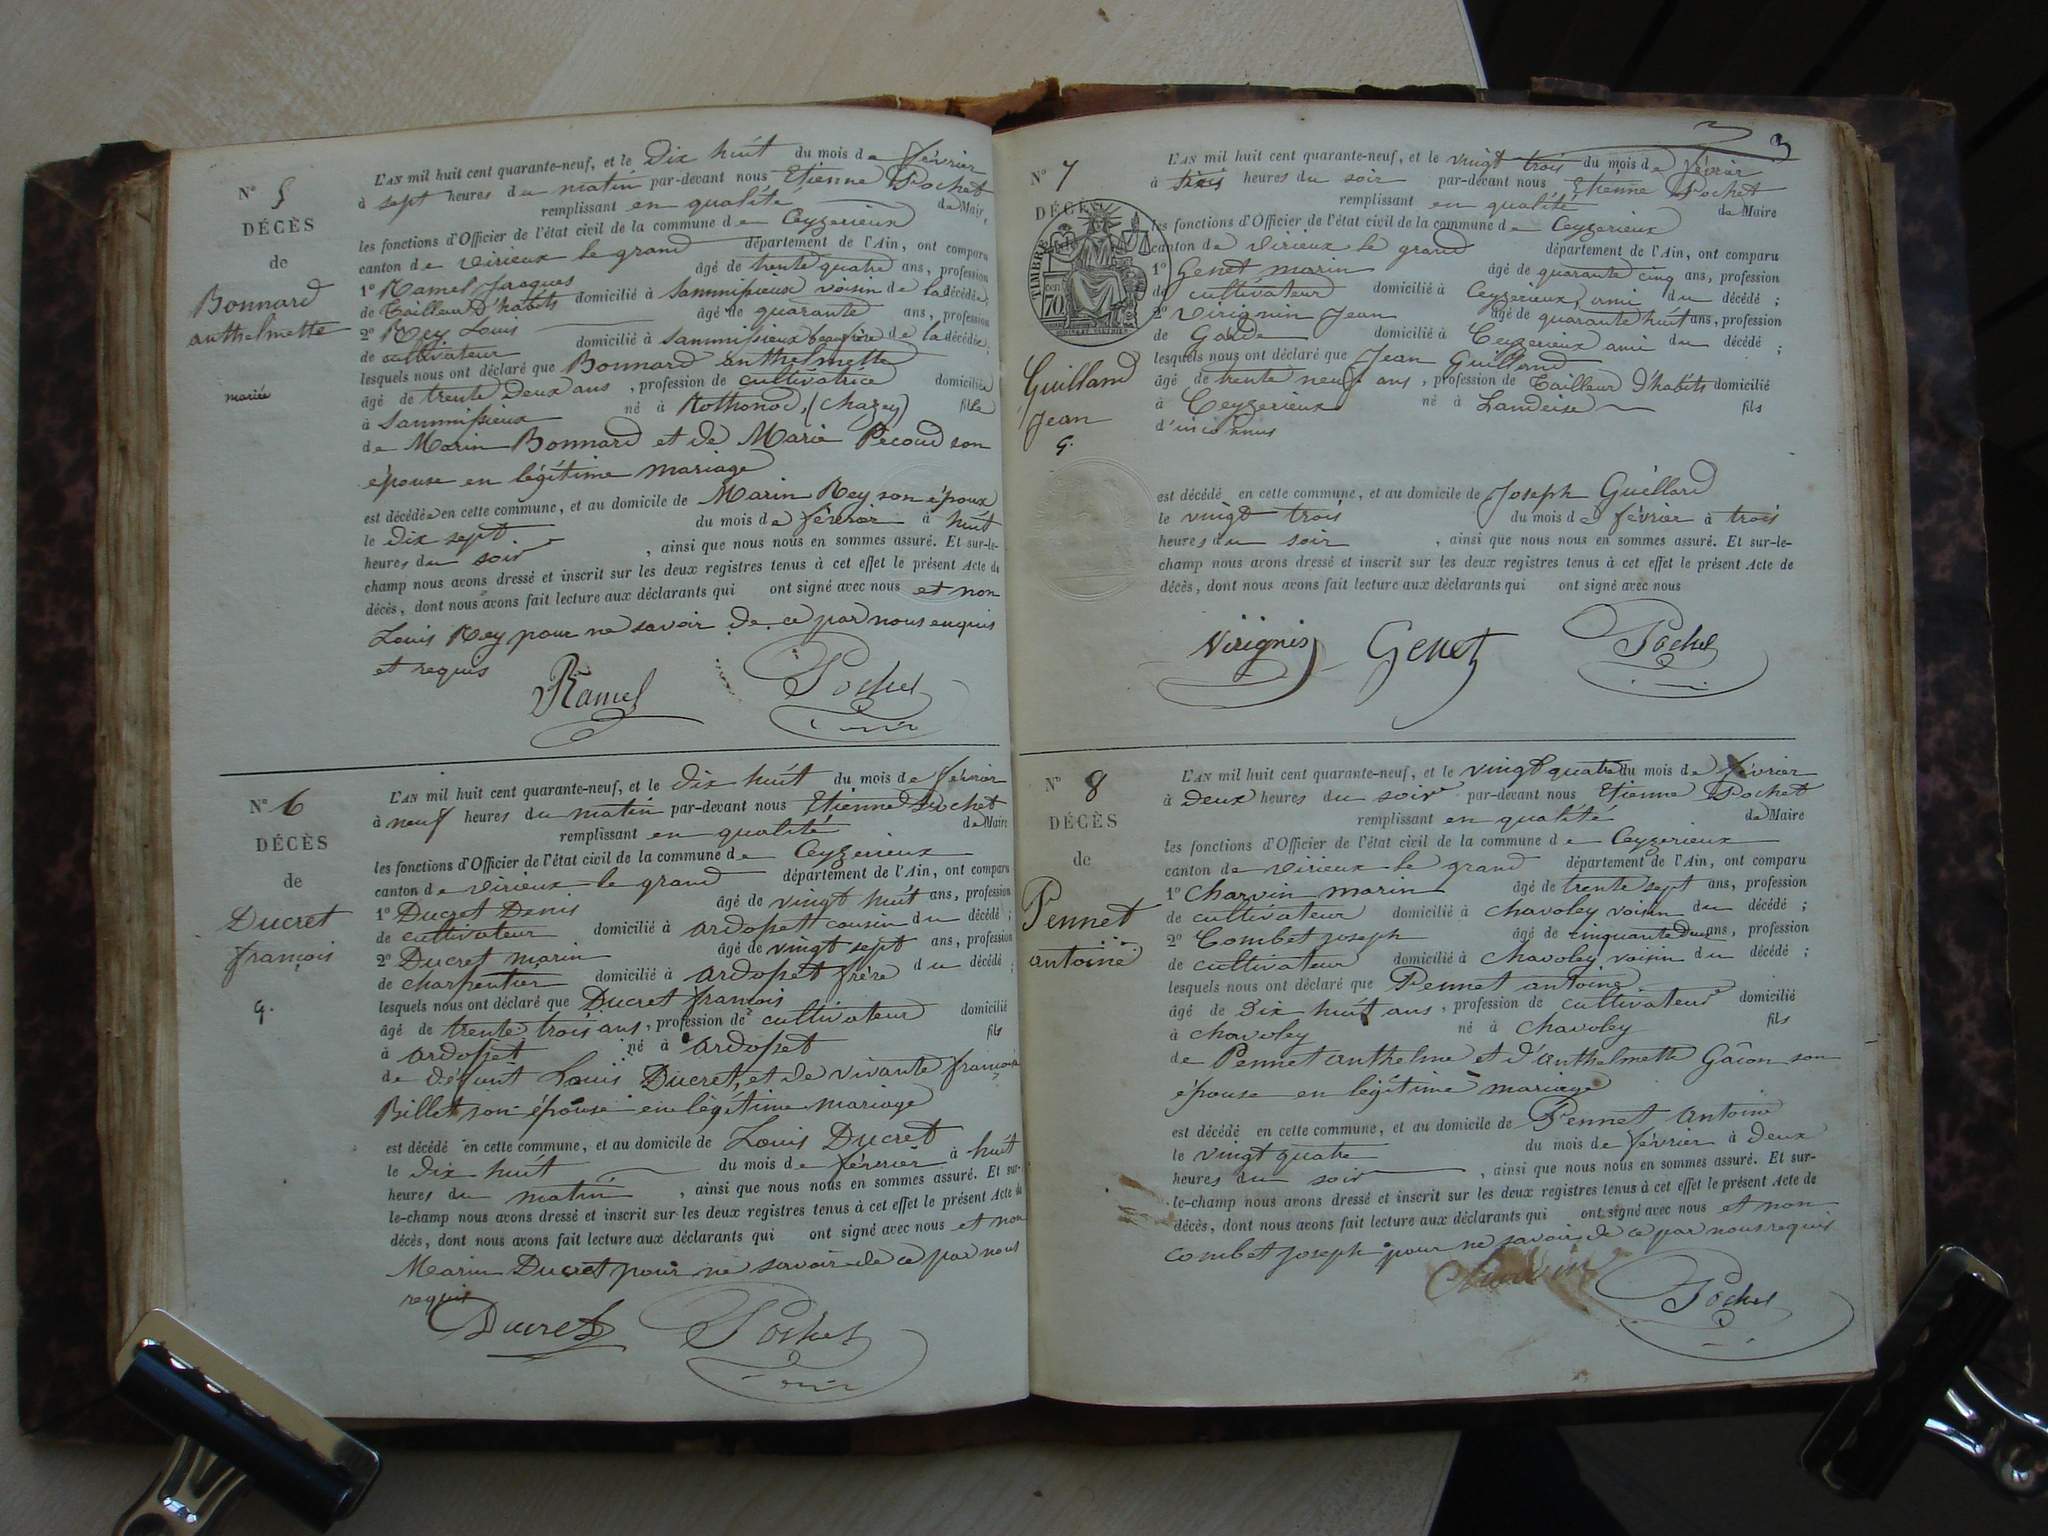 N° 5
DÉCÈS
de
Bonnard
anthelmette
mariée
L'AN mil huit cent quarante-neuf, et le Dix huit du mois de février
à sept heures du matin par-devant nous Etienne Pochet
remplissant en qualité de Maire
les fonctions d'Officier de l'état civil de la commune de Ceyzerieux
canton de virieux le grand département de l'Ain, ont comparu
1° Ramel Jacques âgé de trente quatre ans, profession
de Tailleur D'habits domicilié à Sammissieux voisin de la décédée;
2° Rey Louis âgé de quarante ans, profession
de cultivateur domicilié à Sammissieux beaufrère de la décédée;
lesquels nous ont déclaré que Bonnard anthelmette
âgé de trente Deux ans, profession de cultivatrice domiciliée
à Sammissieux né à Rothonod, (Chazey) fille
de Marin Bonnard et de Marie Pecoud son
épouse en légitime mariage
est décédée en cette commune, et au domicile de Marin Rey son époux
le Dix sept du mois de février à huit
heures du soir, ainsi que nous nous en sommes assuré. Et sur-le-
champ nous avons dressé et inscrit sur les deux registres tenus à cet effet le présent Acte de
décès, dont nous avons fait lecture aux déclarants qui ont signé avec nous et non
Louis Rey pour ne savoir de ce par nous enquis
et requis
Ramel Pochet
N° 6
DÉCÈS
de
Ducret
françois
g.
L'AN mil huit cent quarante-neuf, et le Dix huit du mois de février
à neuf heures du matin par-devant nous Etienne Pochet
remplissant en qualité de Maire
les fonctions d'Officier de l'état civil de la commune de Ceyzerieux
canton de virieux le grand département de l'Ain, ont comparu
1° Ducret Denis âgé de vingt huit ans, profession
de cultivateur domicilié à ardosset cousin du décédé;
2° Ducret marin âgé de vingt sept ans, profession
de charpentier domicilié à ardosset frère du décédé;
lesquels nous ont déclaré que Ducret françois
âgé de trente trois ans, profession de cultivateur domicilié
à ardosset né à ardosset fils
de défunt Louis Ducret, et de vivante françoise
Billet son épouse en légitime mariage
est décédé en cette commune, et au domicile de Louis Ducret
le Dix huit du mois de février à huit
heures du matin, ainsi que nous nous en sommes assuré. Et sur-
le-champ nous avons dressé et inscrit sur les deux registres tenus à cet effet le présent Acte de
décès, dont nous avons fait lecture aux déclarants qui ont signé avec nous et non
Marin Ducret pour ne savoir de ce par nous
requis
Ducret Pochet
3
N° 7
DÉCÈS
TIMBRE
70
Guilland
Jean
g.
L'AN mil huit cent quarante-neuf, et le vingt trois du mois de février
à heures du soir par-devant nous Etienne Pochet
remplissant en qualité de Maire
les fonctions d'Officier de l'état civil de la commune de Ceyzerieux
canton de virieux le grand département de l'Ain, ont comparu
1° Genet marin âgé de quarante cinq ans, profession
de cultivateur domicilié à Ceyzerieux, ami du décédé;
2° Virignin Jean âgé de quarante huit ans, profession
de Garde domicilié à Ceyzerieux ami du décédé;
lesquels nous ont déclaré que Jean Guilland
âgé de trente neuf ans, profession de Tailleur D'habits domicilié
à Ceyzerieux né à Landeise fils
d'inconnus
est décédé en cette commune, et au domicile de Joseph Guilland
le vingt trois du mois de février à trois
heures du soir, ainsi que nous nous en sommes assuré. Et sur-le-
champ nous avons dressé et inscrit sur les deux registres tenus à cet effet le présent Acte de
décès, dont nous avons fait lecture aux déclarants qui ont signé avec nous
Virignin Genet Pochet
N° 8
DÉCÈS
de
Pennet
antoine
L'AN mil huit cent quarante-neuf, et le vingt quatre du mois de février
à Deux heures du soir par-devant nous Etienne Pochet
remplissant en qualité de Maire
les fonctions d'Officier de l'état civil de la commune de Ceyzerieux
canton de virieux le grand département de l'Ain, ont comparu
1° Charvin marin âgé de trente sept ans, profession
de cultivateur domicilié à chavoley voisin du décédé;
2° Combet joseph âgé de cinquante Deux ans, profession
de cultivateur domicilié à chavoley voisin du décédé;
lesquels nous ont déclaré que Pennet antoine
âgé de Dix huit ans, profession de cultivateur domicilié
à chavoley né à chavoley fils
de Pennet anthelme et d'anthelmette Gâcon son
épouse en légitime mariage
est décédé en cette commune, et au domicile de Pennet antoine
le vingt quatre du mois de février à Deux
heures du soir, ainsi que nous nous en sommes assuré. Et sur-
le-champ nous avons dressé et inscrit sur les deux registres tenus à cet effet le présent Acte de
décès, dont nous avons fait lecture aux déclarants qui ont signé avec nous et non
combet joseph pour ne savoir de ce par nous requis
Charvin Pochet